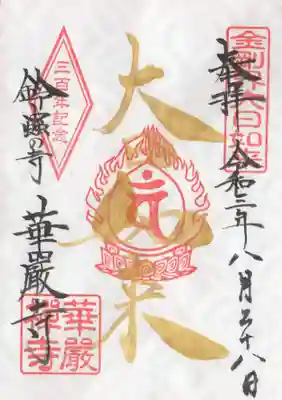 金剛界大日如来
奉拝
令和三年八月二十八日
大日如来
三百年記念
鈴蟲の寺
華嚴寺
華嚴禅寺